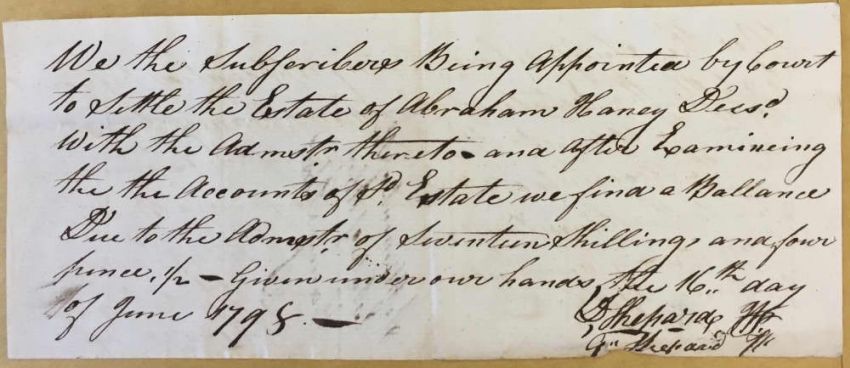 We the Subscribers Being Appointed by Court
to Settle the Estate of Abraham Haney Decsd.
With the Admstr thereto - and After Examineing
the the Accounts of sd. Estate we find a Ballance
Due to the Admstr. of Seventeen Shillings and four
pence, 1/2 - Given under our hands, the 16th day
of June 1798. -
Shepard
Shepard